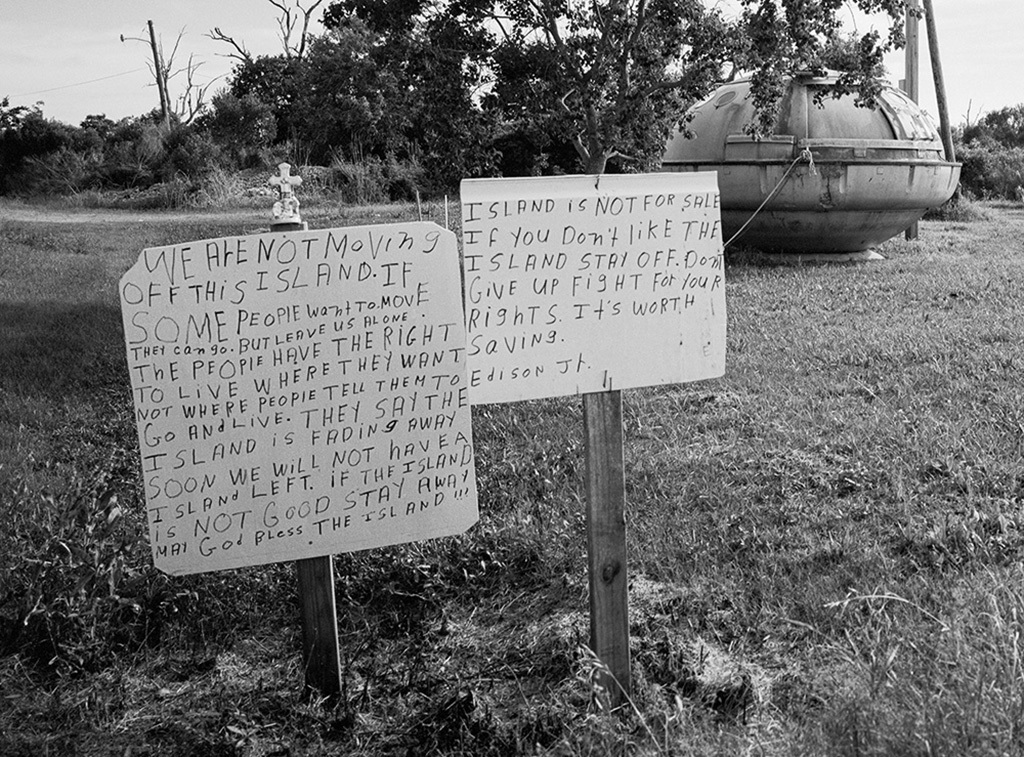 WE ARE NOT MOVing
OFF THIS ISLAND. IF
SOME PEOPLE WANT TO MOVE
THEY can go. BUT LEAVE US ALONE.
THE PEOPLE HAVE THE RIGHT
TO LIVE WHERE THEY WANT
NOT WHERE PEOPLE TELL THEM TO
GO ANd LIVE. THEY SAY THE
ISLAND IS FADING AWAY
SOON WE WILL NOT HAVE A
ISLANd LEFT. IF THE ISLAND
is NOT GOOD STAY AWAY
MAY God BLESS THE ISLAND !!!
ISLAND is NOT FOR SALE
If YOU DON'T LIKE THE
ISLAND STAY OFF. DON'T
GIVE UP FIGHT FOR YOUR
RIGHTS. It's WORTH
SAVING.
EDISON Jr.